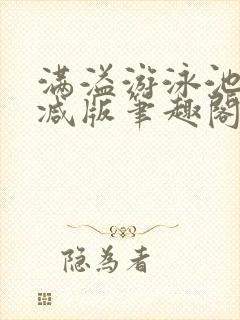 满溢游泳池
减版笔趣阁
隐为者